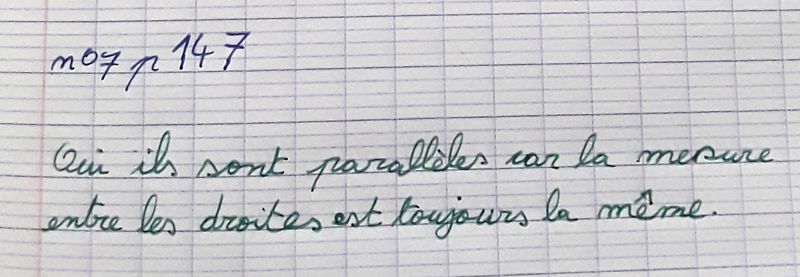 n°7 p 147
Oui ils sont parallèles car la mesure
entre les droites est toujours la même.